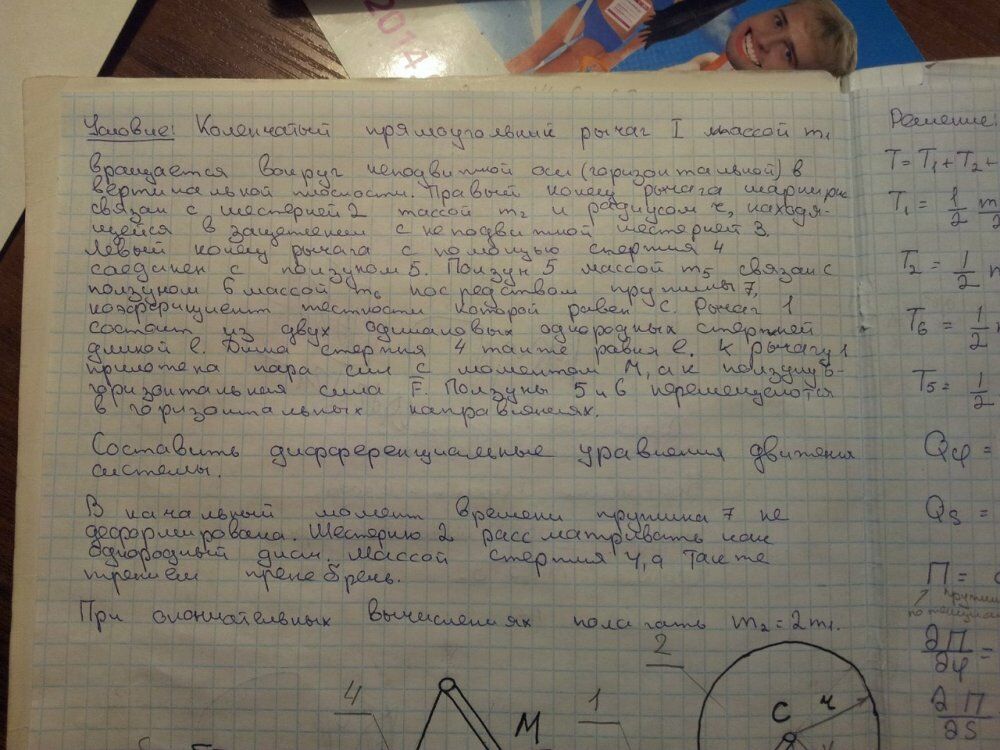 2014
Условие: Коленчатый прямоугольный рычаг I массой m₁
вращается вокруг неподвижной оси (горизонтальной) в
вертикальной плоскости. Правый конец рычага шарнирно
связан с шестерней 2 массой m₂ и радиусом r, находя-
щейся в зацеплении с неподвижной шестерней 3.
Левый конец рычага с помощью стержня 4
соединен с ползуном 5. Ползун 5 массой m₅ связан с
ползуном 6 массой m₆ посредством пружины 7,
коэффициент жесткости которой равен c. Рычаг 1
состоит из двух одинаковых однородных стержней
длиной l. Длина стержня 4 также равна l. К рычагу 1
приложена пара сил с моментом M, а к ползуну 6-
горизонтальная сила F̄. Ползуны 5 и 6 перемещаются
в горизонтальных направлениях.
Составить дифференциальные уравнения движения
системы.
В начальный момент времени пружина 7 не
деформирована. Шестерню 2 рассматривать как
однородный диск. Массой стержня 4, а также
трением пренебречь.
При окончательных вычислениях полагать m₂ = 2m₁.
4
M
1
2
C
r
Решение:
T = T₁ + T₂ +
T₁ = 1/2 m
T₂ = 1/2
T₆ = 1/2
T₅ = 1/2
Qφ =
Qs =
П =
∂П/∂φ =
∂П/∂S